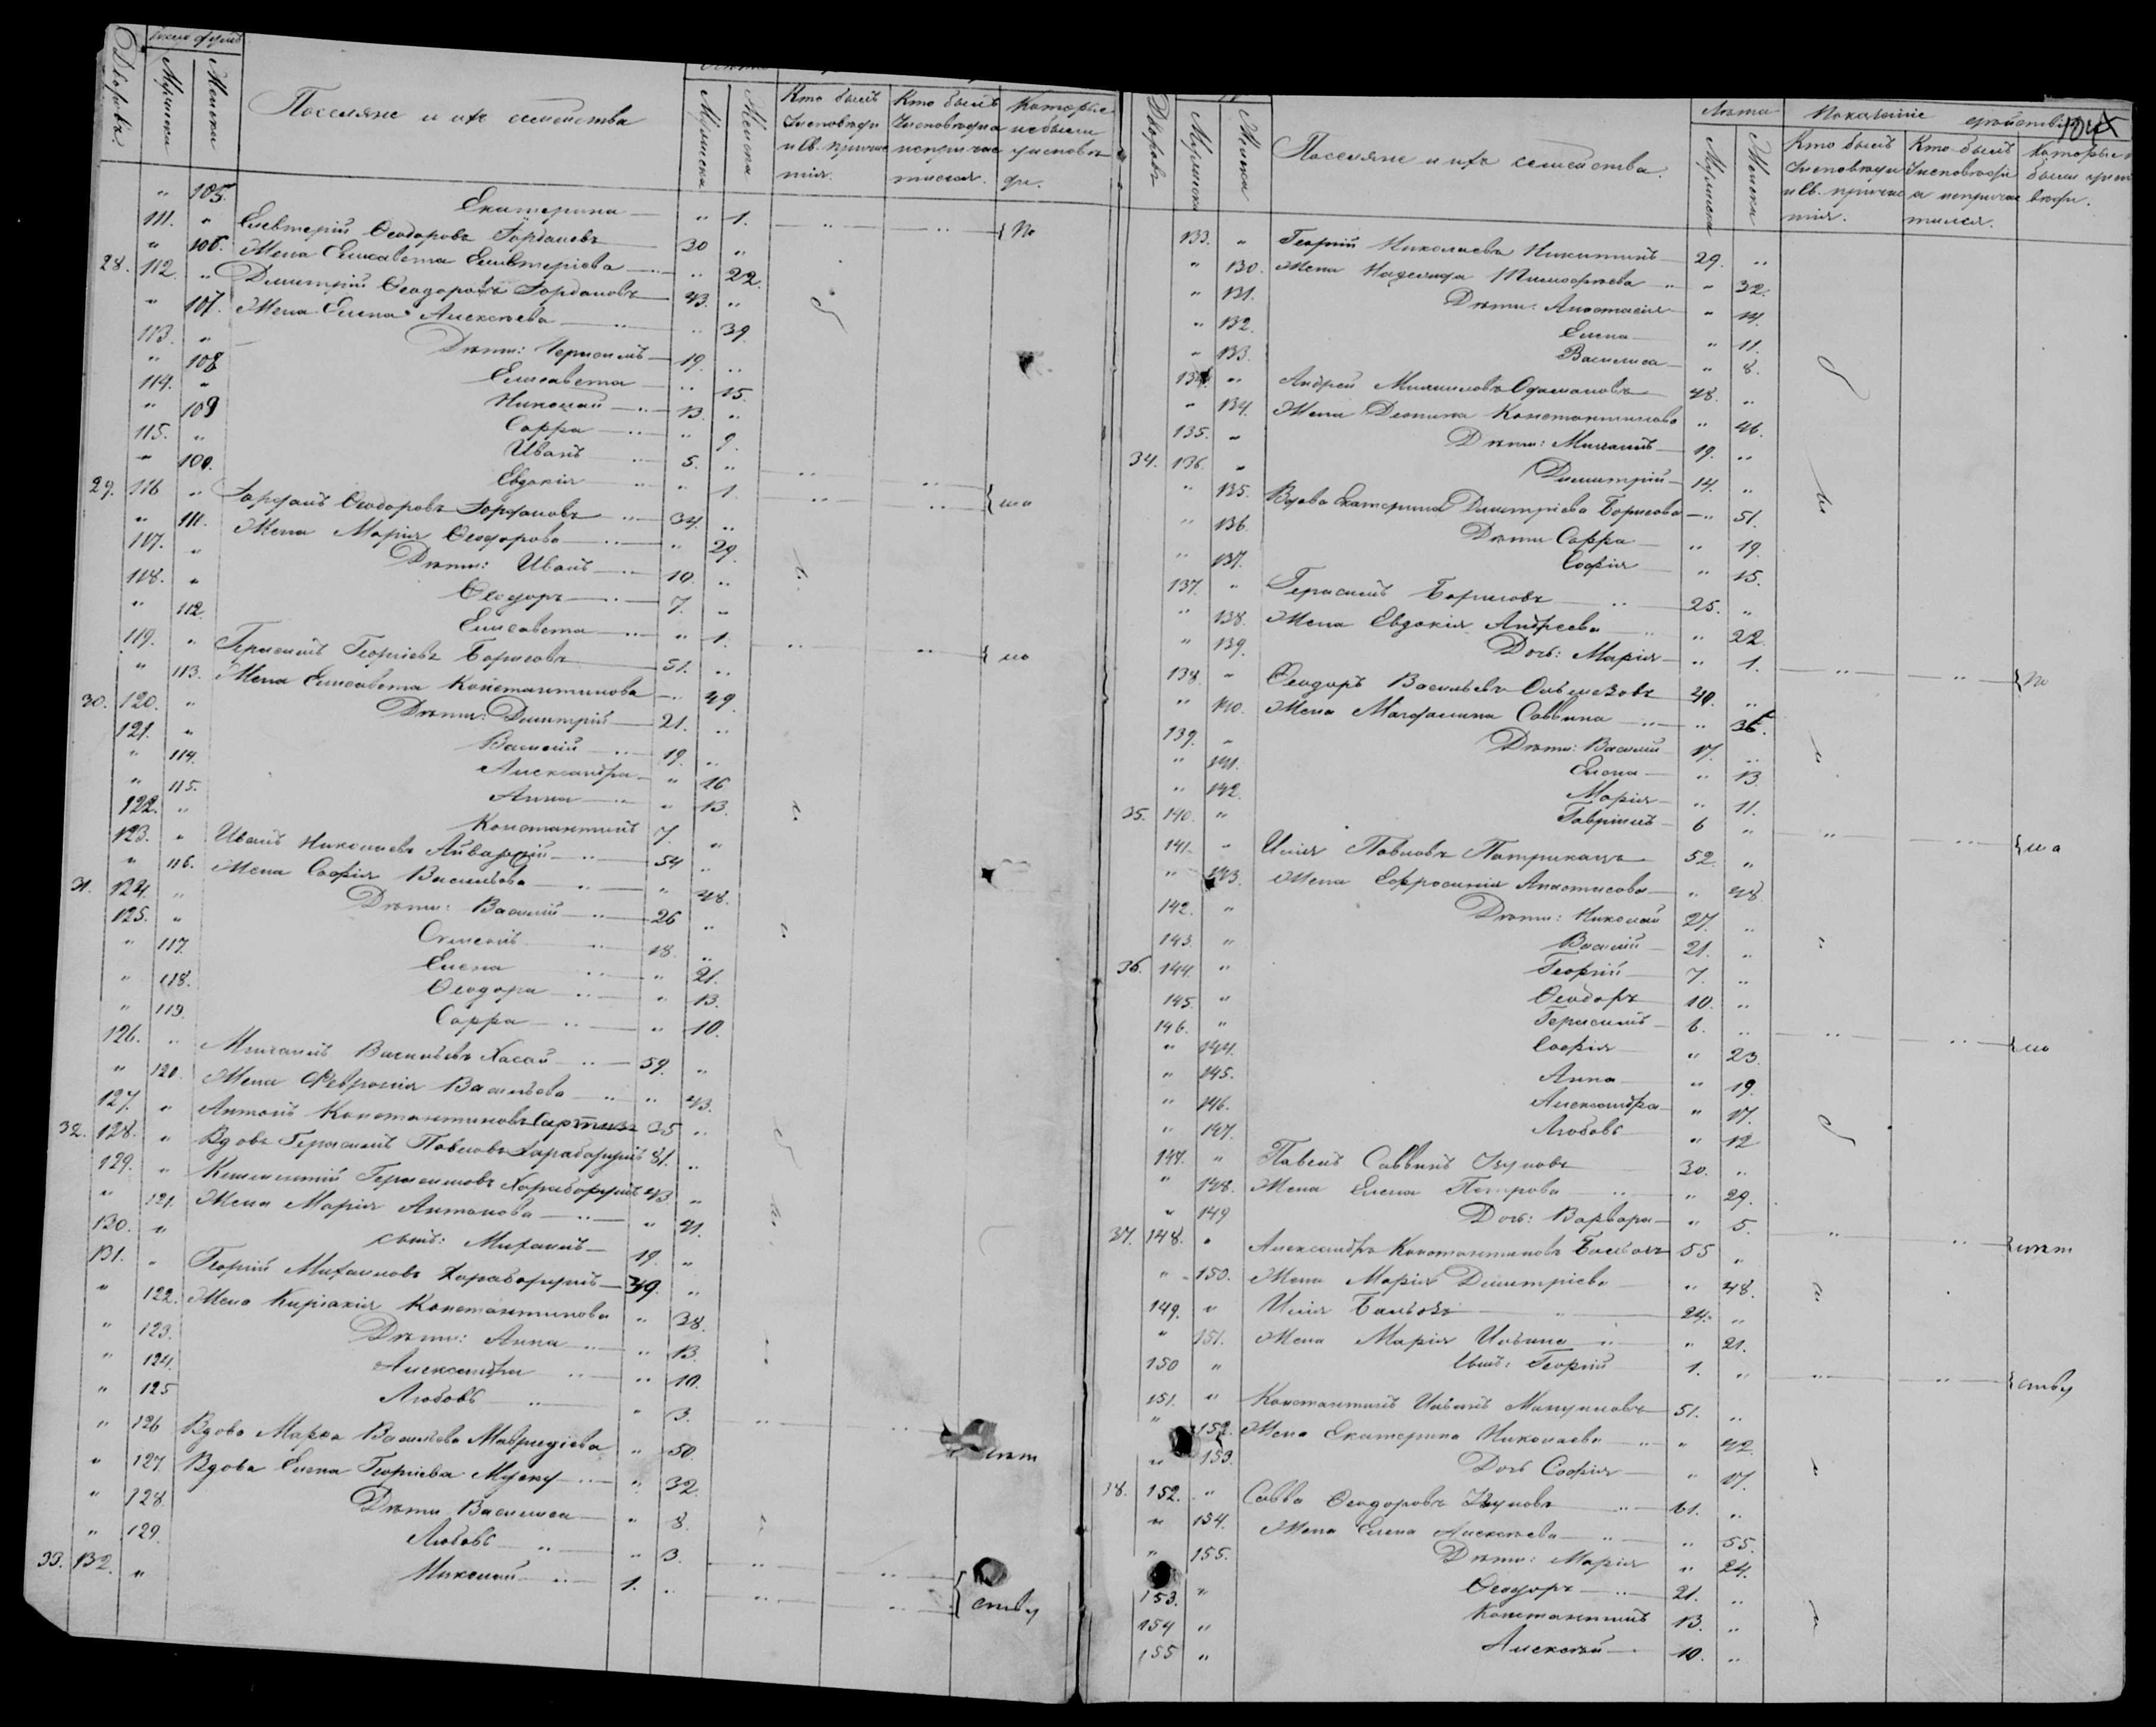 Дворовъ
Мужска
Женска
Поселяне и ихъ семейства
Мужска
Женска
Кто былъ Исповѣди и Св. причастія.
Кто былъ Исповѣди а непричастился.
Которые небыли исповѣди.
" 105. Екатерина " 1. { По
111. " Елевтерій Ѳеодоровъ Іордановъ 30 "
" 106. Жена Елисавета Елевтеріева " 22.
28. 112. " Димитрій Ѳеодоровъ Іордановъ 43. "
" 107. Жена Елена Алексѣева " 39.
113. " Дѣти: Герасимъ 19. "
" 108 Елисавета " 15.
114. " Николай 13. "
" 109 Сарра " 9.
115. " Иванъ 5. "
" 100. Евдокія " 1. { ма
29. 116 " Іорданъ Ѳеодоровъ Іордановъ 34. "
" 111. Жена Марія Ѳеодорова " 29.
117. " Дѣти: Иванъ 10. "
118. " Ѳеодоръ 7. "
" 112. Елисавета " 1. { ло
119. " Герасимъ Георгіевъ Борисовъ 51. "
" 113. Жена Елисавета Константинова 49.
30. 120. " Дѣти: Димитрій 21. "
121. " Василій 19. "
" 114. Александра " 16
" 115. Анна " 13.
122. " Константинъ 7. "
123. " Иванъ Николаевъ 54 "
" 116. Жена Софія Васильева " 48.
31. 124. " Дѣти: Василій 26 "
125. " 18. "
" 117. Елена " 21.
" 118. Ѳеодора " 13.
" 119. Сарра " 10.
126. " Михаилъ Васильевъ Хасай 59. "
" 120. Жена Февронія Васильева " 43.
127. " Антонъ Константиновъ 35 "
32. 128. " Вдовъ Герасимъ Павловъ Хараборджій 81. "
129. " Климентій Герасимовъ Хараборджій 43. "
" 121. Жена Марія Антонова " 41.
130. " сынъ: Михаилъ 19. "
131. " Георгій Михаиловъ Хараборджій 39. "
" 122. Жена Киріакія Константинова " 38.
" 123. Дѣти: Анна " 13.
" 124. Александра " 10.
" 125 Любовь " 3.
" 126 Вдова Марѳа Васильева Мавридіева " 50.
" 127. Вдова Елена Георгіева " 32.
" 128. Дѣти Василиса " 8.
" 129. Любовь " 3.
33. 132. " Николай 1. " { ству
Дворовъ
Мужска
Женска
Поселяне и ихъ семейства.
Лѣта
Мужска
Женска
Показаніе
Кто былъ Исповѣди и Св. причастія.
Кто былъ Исповѣди а непричастился.
133. " Георгій Николаевъ Никитинъ 29. "
" 130. Жена Надежда Тимофеева " 32.
" 131. Дѣти: Анастасія " 14.
" 132. Елена " 11.
" 133. Василиса " 8.
134. " Андрей Михаиловъ 48. "
" 134. Жена Константинова " 46.
135. " Дѣти: Михаилъ 19. "
34. 136. " Димитрій 14. "
" 135. Вдова Екатерина Димитріева Борисова " 51.
" 136. Дѣти Сарра " 19.
" 137. Софія " 15.
137. " Герасимъ Борисовъ 25. "
" 138. Жена Евдокія Андреева " 22.
" 139. Дочь: Марія " 1. { По
138. " Ѳеодоръ Васильевъ 40. "
" 140. Жена Магдалина Саввина " 36.
139. " Дѣти: Василій 17. "
" 141. Елена " 13.
" 142. Марія " 11.
35. 140. " Гавріилъ 6 " { ма
141. " Илія Павловъ 52. "
" 143. Жена Ефросинія Анастасова " 48.
142. " Дѣти: Николай 27. "
143. " Василій 21. "
36. 144. " Георгій 7. "
145. " Ѳеодоръ 10. "
146. " Герасимъ 6. " { ло
" 144. Софія " 23.
" 145. Анна " 19.
" 146. Александра " 17.
" 147. Любовь " 12
147. " Павелъ Саввинъ Узуновъ 30. "
" 148. Жена Елена Петрова " 29.
" 149 Дочь: Варвара " 5. { лѣт
37. 148. " Александръ Константиновъ 55 "
" 150. Жена Марія Димитріева " 48.
149. " Илія 24. "
" 151. Жена Марія Ильина " 21.
150 " сынъ: Георгій 1. " { ству
151. " Константинъ Ильинъ Мануиловъ 51. "
" 152. Жена Екатерина Николаева " 42.
" 153. Дочь Софія " 17.
38. 152. " Савва Ѳеодоровъ Узуновъ 61. "
" 154. Жена Елена Алексѣева " 55.
" 155. Дѣти: Марія " 24.
153. " Ѳеодоръ 21. "
154 " Константинъ 13. "
155 " Алексѣй 10. "